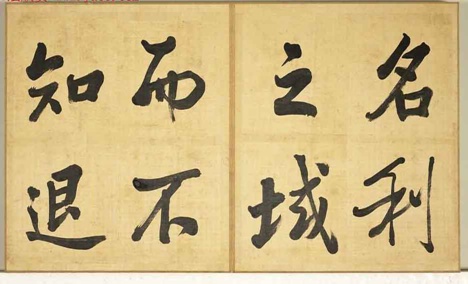 名利
之域
而不
知退